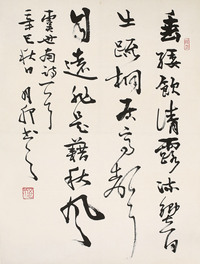 垂緌飲清露流響
出疏桐居高聲
自遠非是藉秋風
虞世南詩一首
辛巳秋日